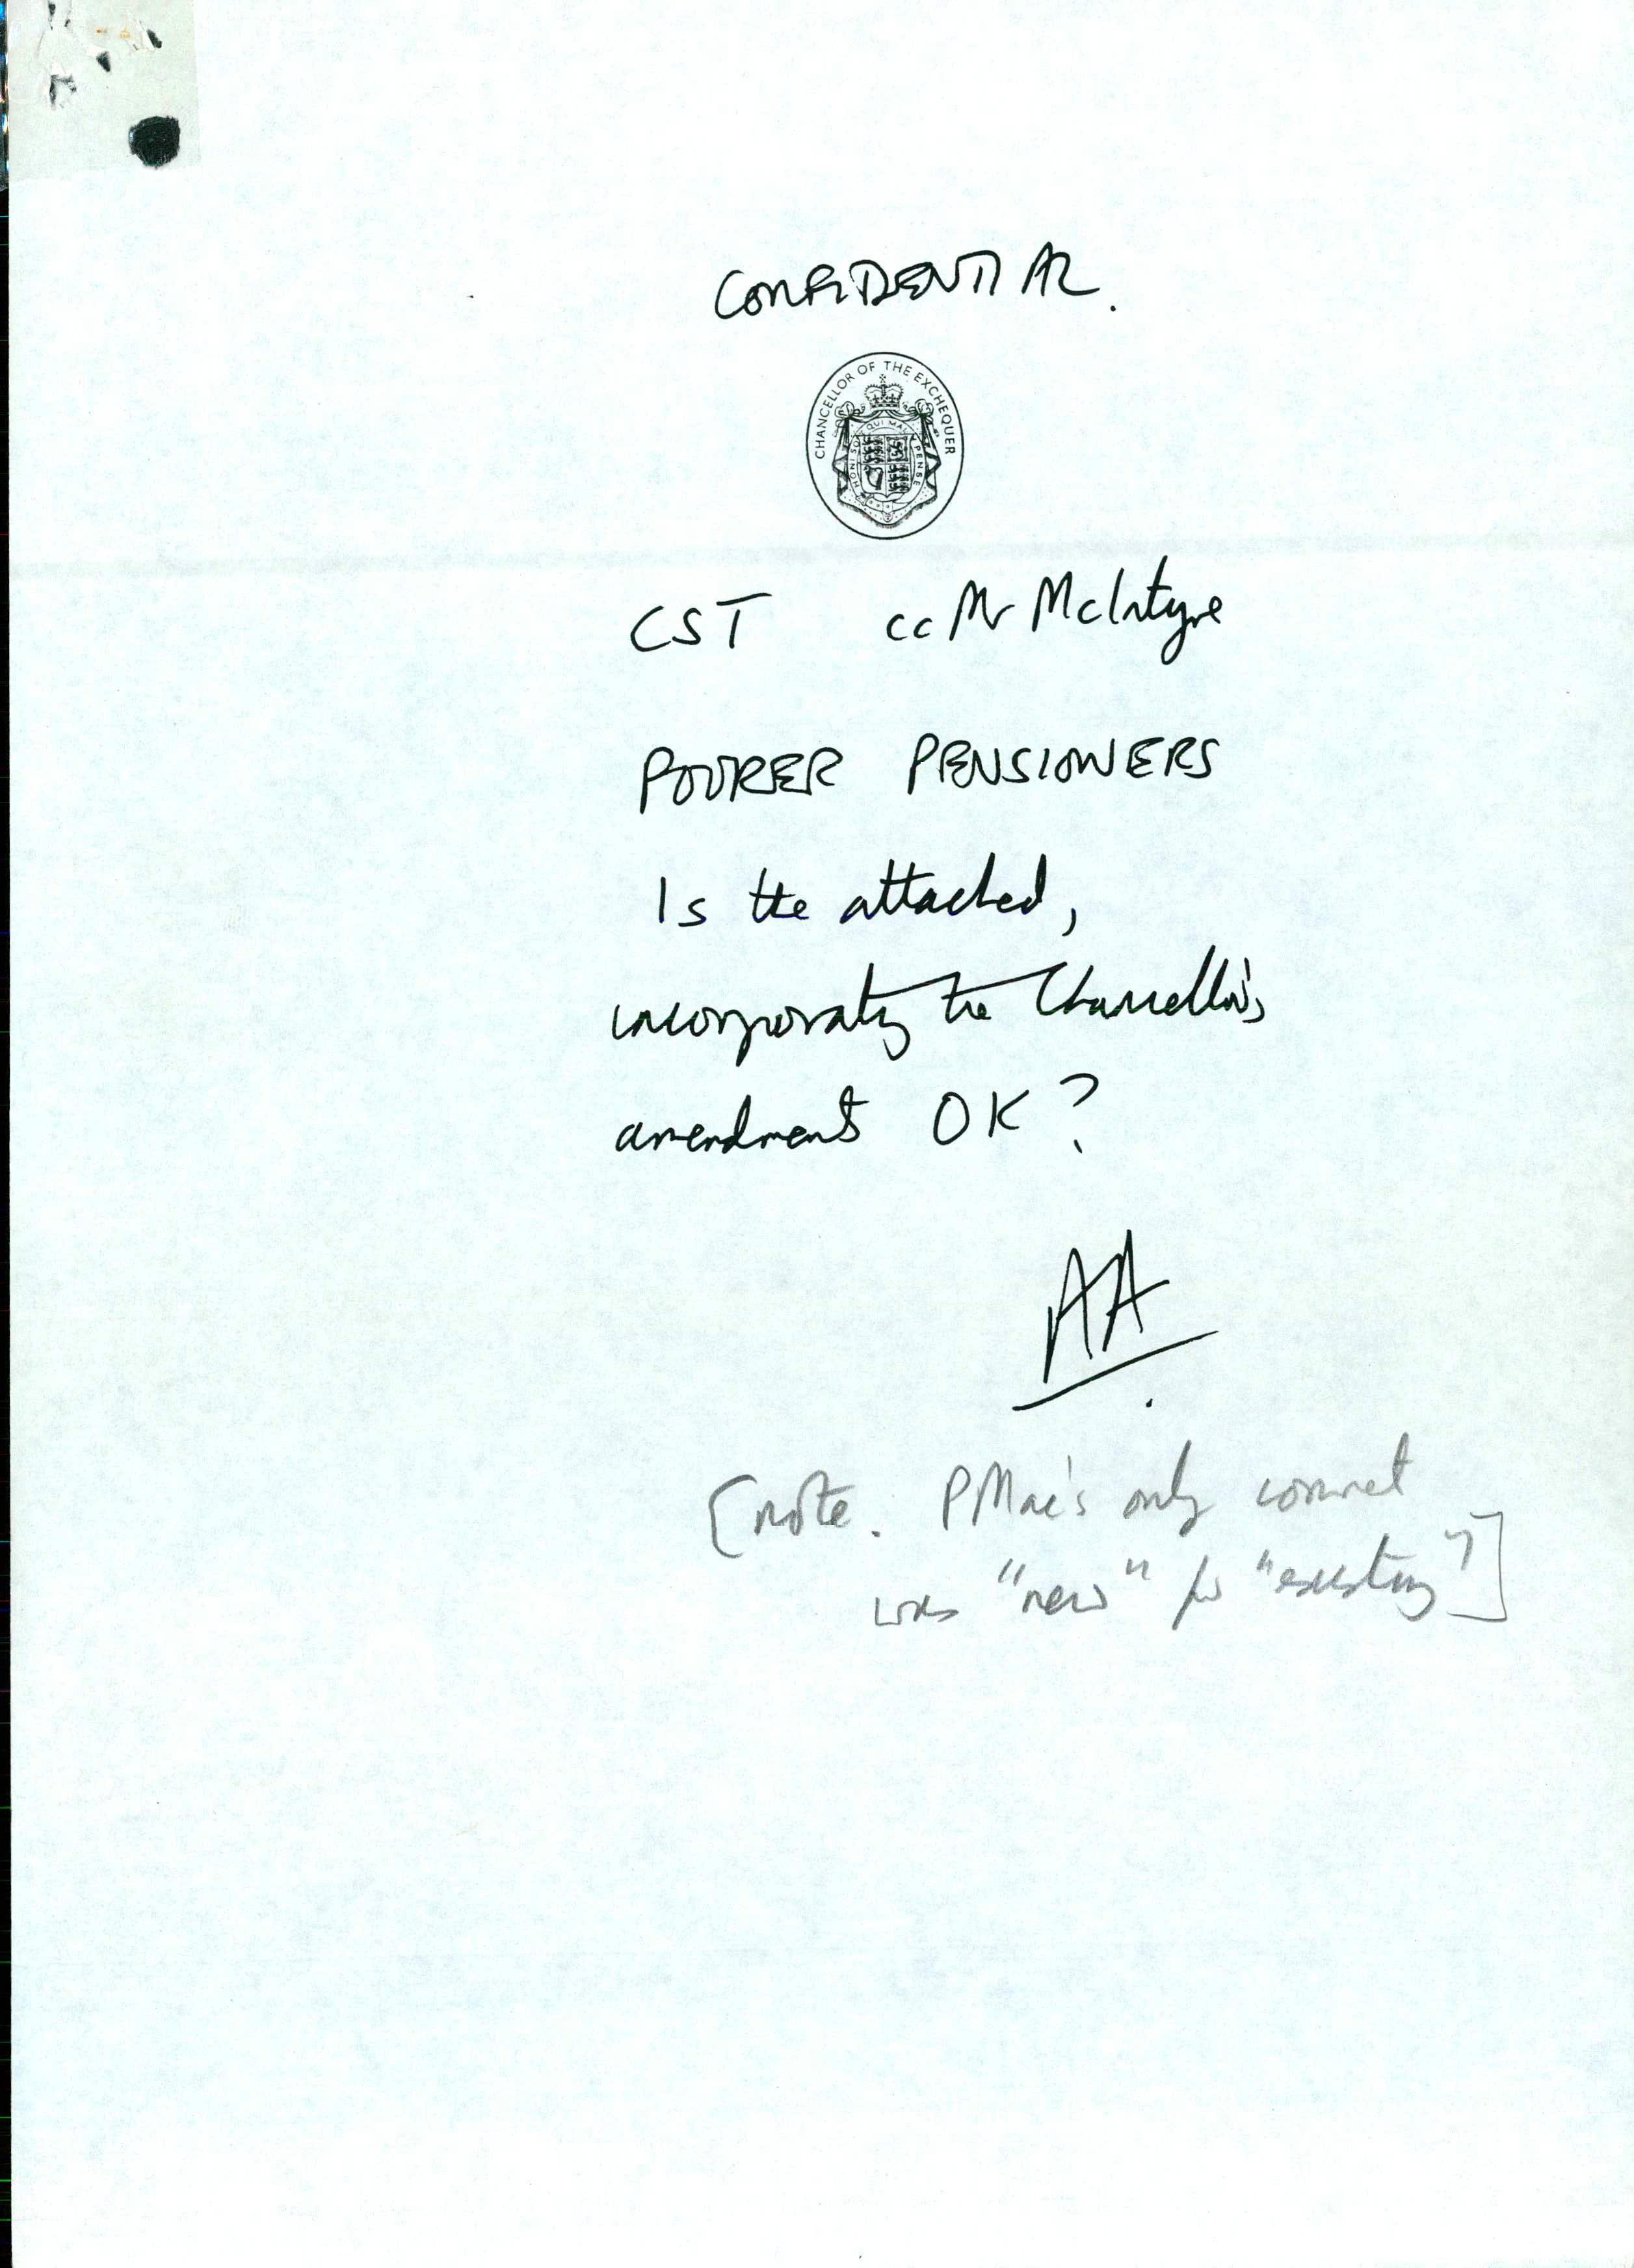 CONFIDENTIAL.
CHANCELLOR OF THE EXCHEQUER
HONI SOIT QUI MAL Y PENSE
CST cc Mr McIntyre
POORER PENSIONERS
Is the attached,
incorporating the Chancellor's
amendments OK?
AA
[note. PMac's only comment
was "new" for "existing"]